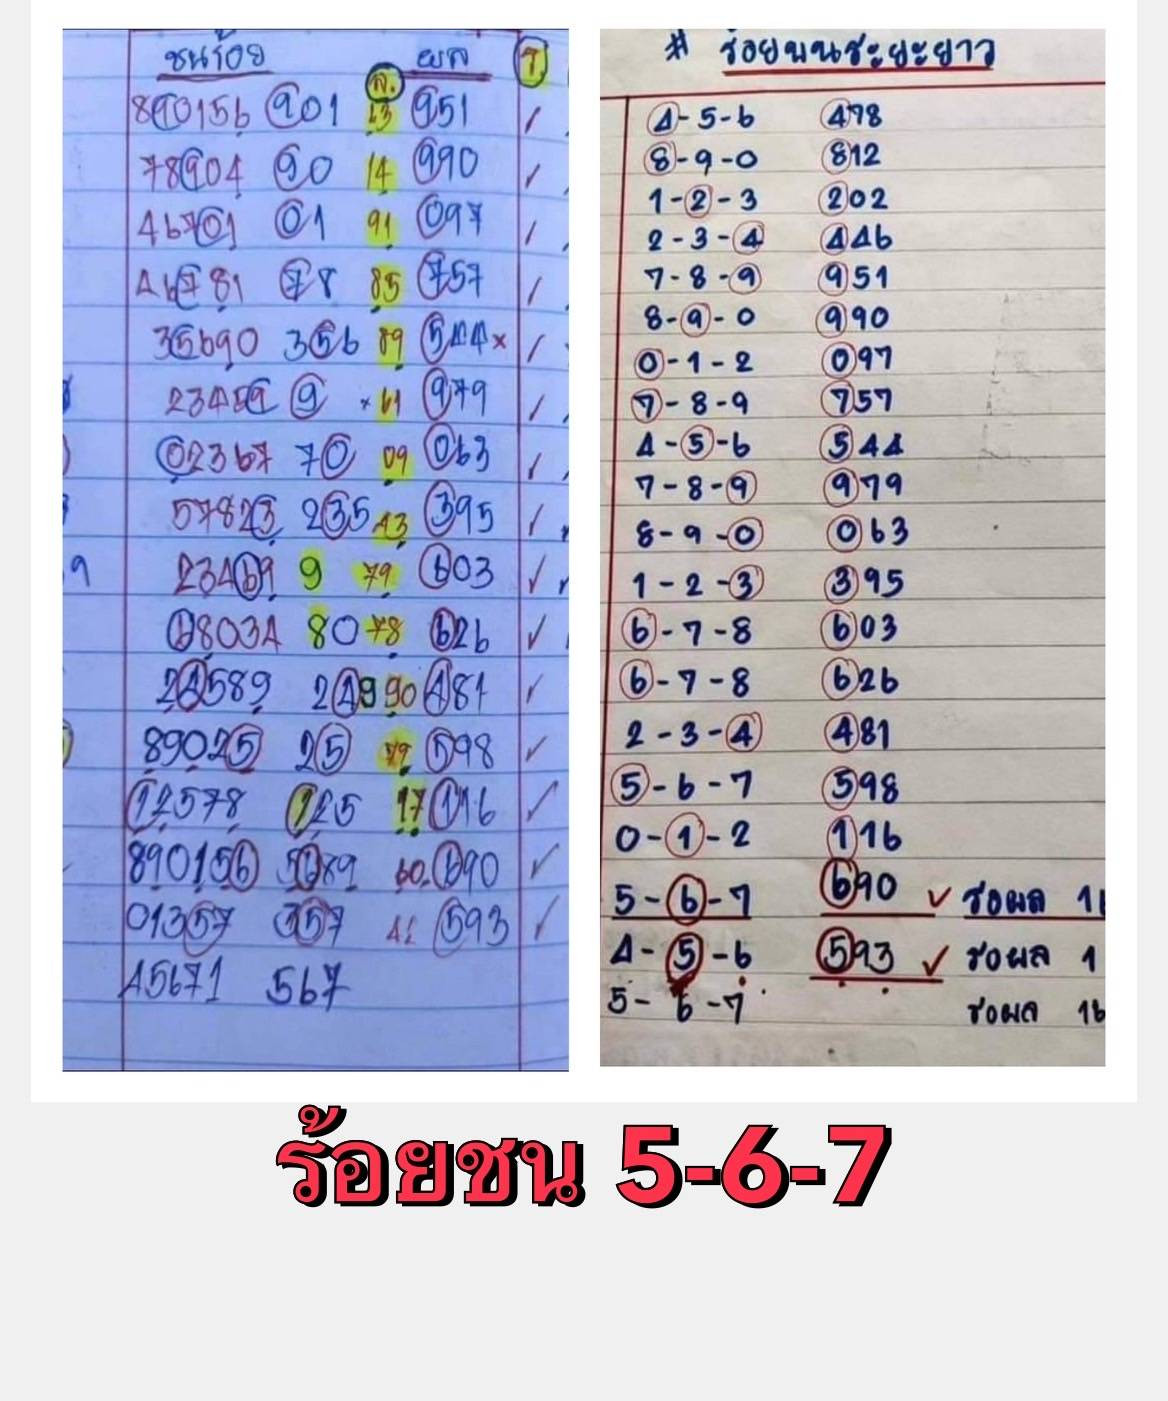 ชนร้อย ผล
ล. ต
890156 901 951
78904 90 14 990
46701 01 91 097
46781 78 85 757
35690 356 89 544 ×
23459 9 × 61 979
02367 70 09 063
57823 235 43 395
23469 9 79 603
68034 80 78 626
24589 249 90 481
89025 25 598
12578 125 17 116
890156 5689 60. 690
01357 357 593
45671 567
# ร้อยบนระยะยาว
4-5-6 478
8-9-0 812
1-2-3 202
2-3-4 446
7-8-9 951
8-9-0 990
0-1-2 097
7-8-9 757
4-5-6 544
7-8-9 979
8-9-0 063
1-2-3 395
6-7-8 603
6-7-8 626
2-3-4 481
5-6-7 598
0-1-2 116
5-6-7 690 ✓ รอผล 1
4-5-6 593 ✓ รอผล 1
5-6-7 รอผล 16
ร้อยชน 5-6-7